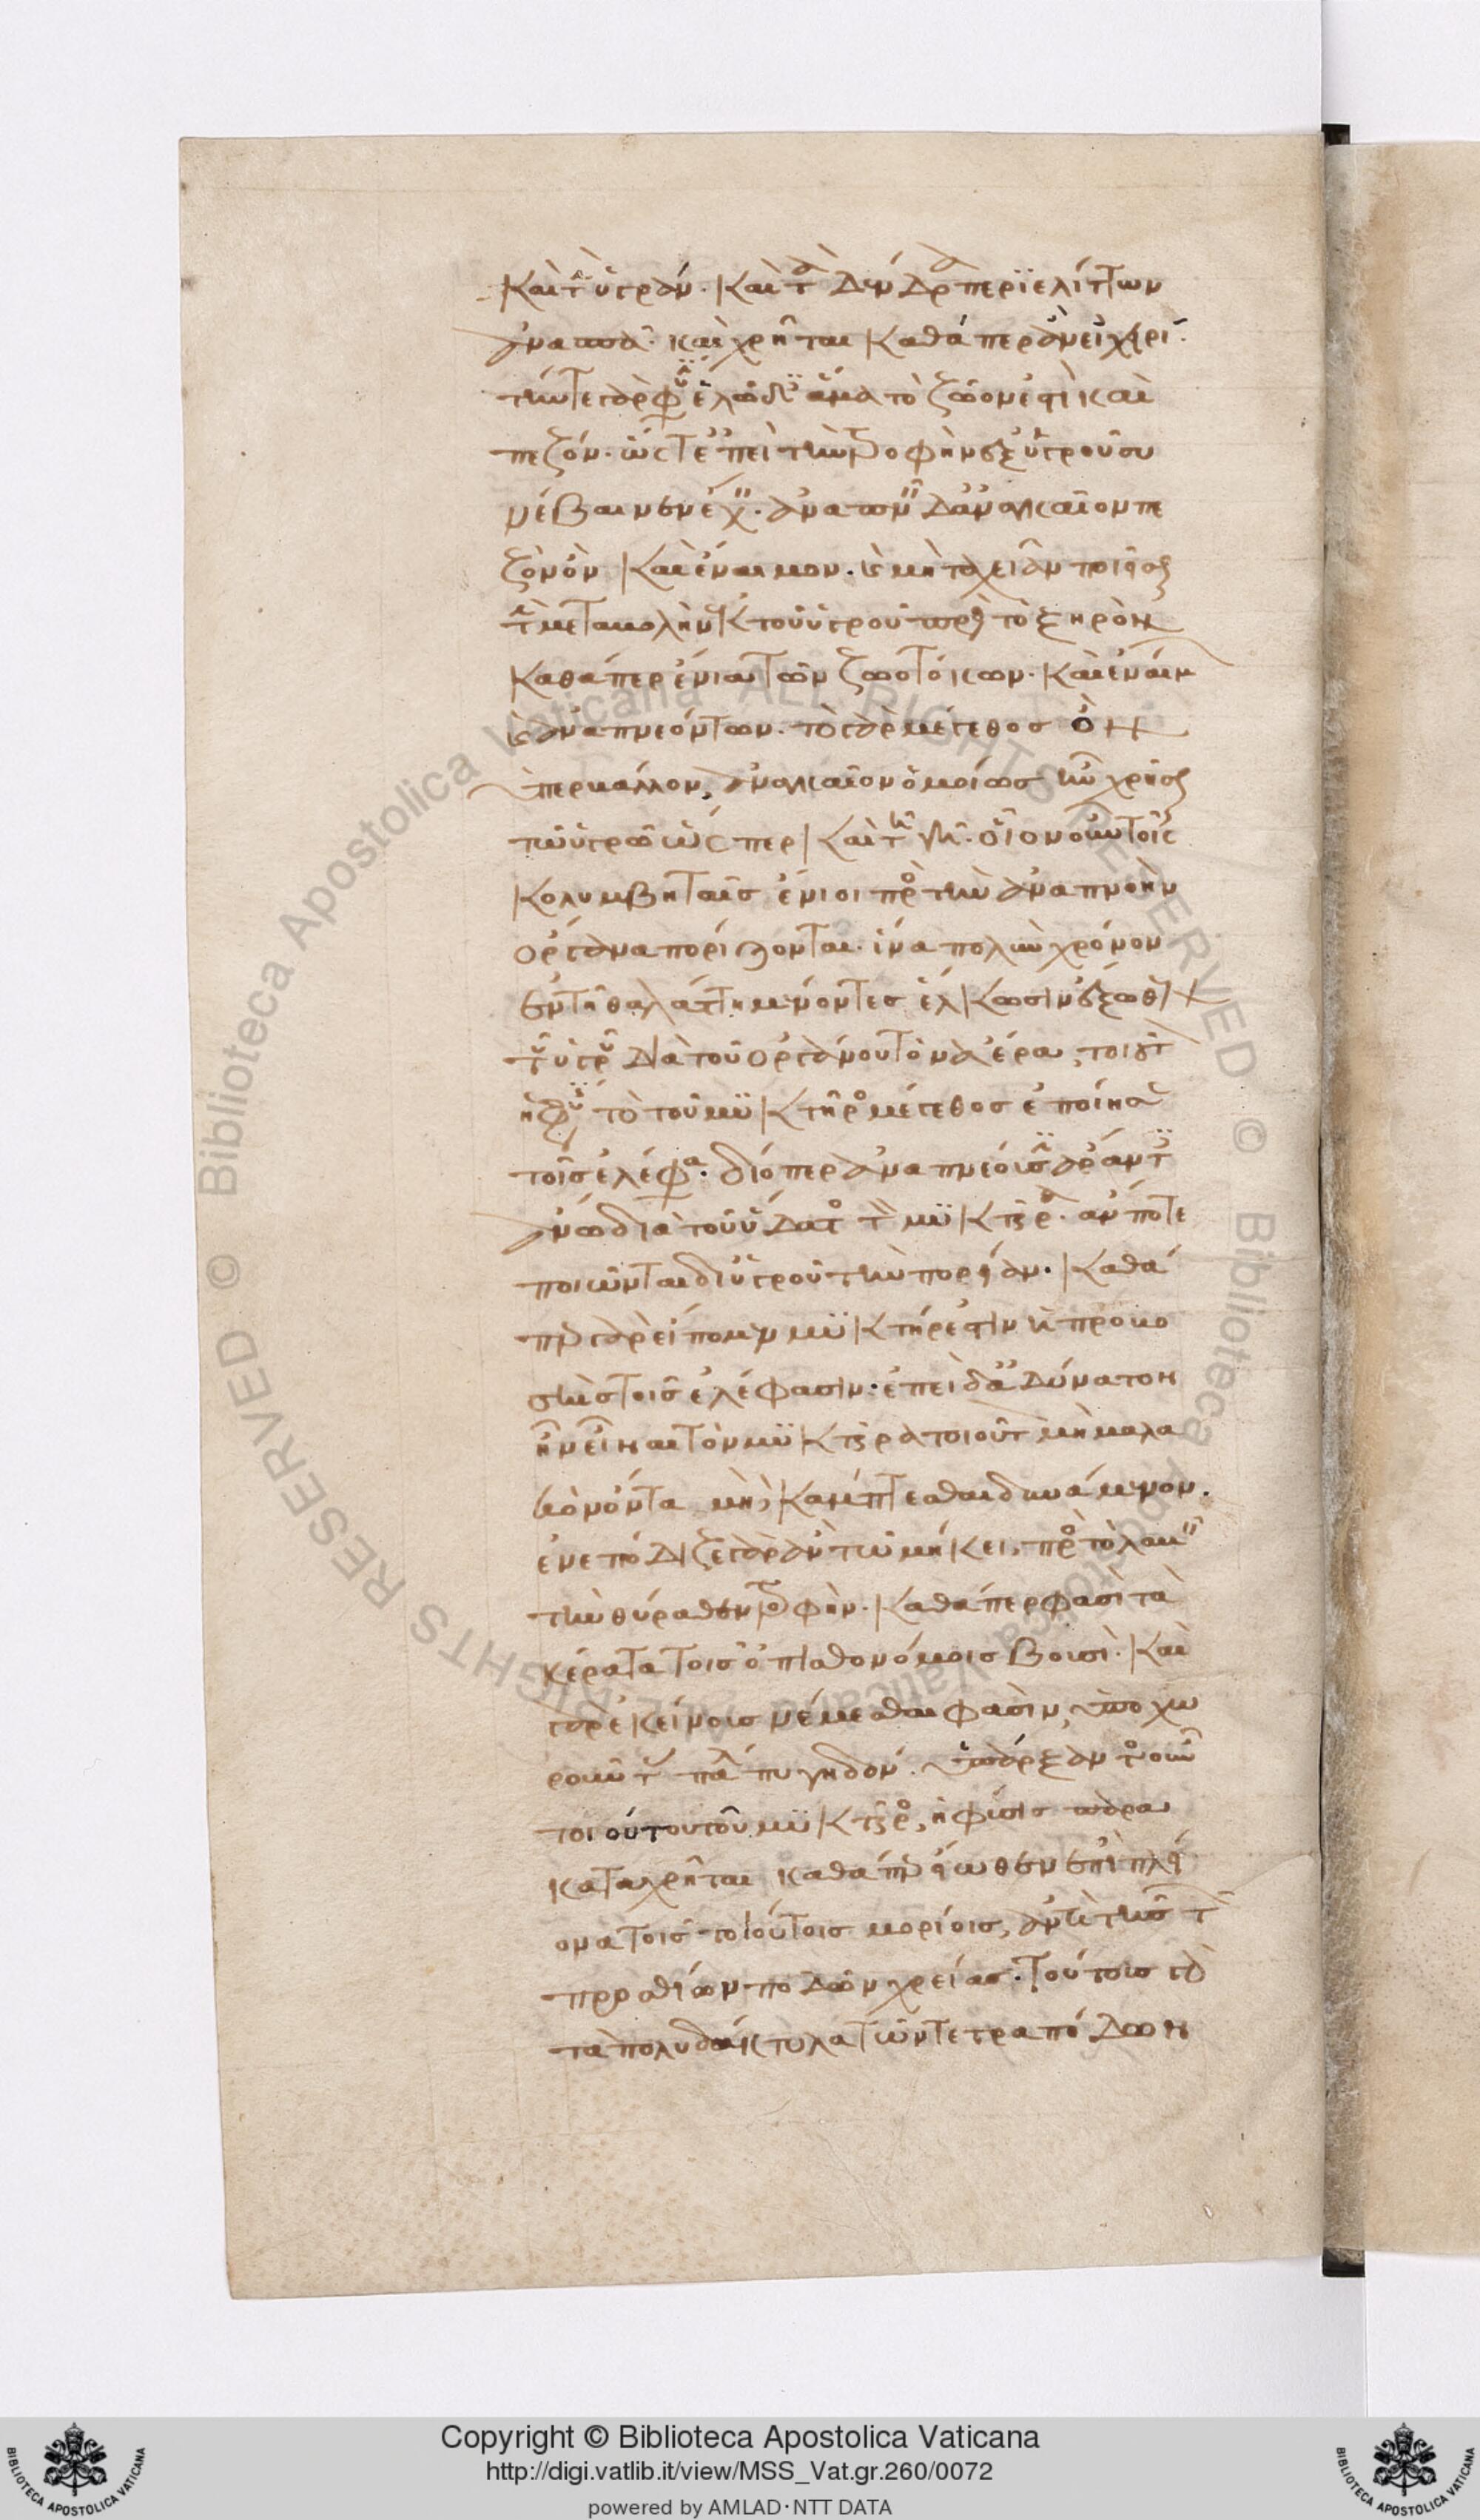 καὶ τὴν ὑγράν· καὶ τὰ δένδρα περιελίττων
ἀνασπᾶ· καὶ χρῆται καθάπερ ἂν εἰ χειρί·
τὴν γὰρ φύσιν ἑλῶδες ἅμα τὸ ζῷόν ἐστι καὶ
πεζόν· ὥστ' ἐπεὶ τὴν τροφὴν ἐξ ὑγροῦ συ
νέβαινεν ἔχειν· ἀναπνεῖν δ' ἀναγκαῖον πε
ζὸν ὂν καὶ ἔναιμον· καὶ μὴ ταχεῖαν ποιεῖσθαι
τὴν μεταβολὴν ἐκ τοῦ ὑγροῦ πρὸς τὸ ξηρὸν
καθάπερ ἔνια τῶν ζωοτόκων· καὶ ἐναίμων
καὶ ἀναπνεόντων· τὸ γὰρ μέγεθος ὂν
ὑπερβάλλον, ἀναγκαῖον ὁμοίως ἦν χρῆσθαι
τῷ ὑγρῷ ὥσπερ καὶ τῇ γῇ· οἷον οὖν τοῖς
κολυμβηταῖς ἔνιοι πρὸς τὴν ἀναπνοὴν
ὄργανα πορίζονται· ἵνα πολὺν χρόνον
ἐν τῇ θαλάττῃ μένοντες ἕλκωσιν ἔξωθεν
τοῦ ὑγροῦ διὰ τοῦ ὀργάνου τὸν ἀέρα, τοιοῦτον
ἡ φύσις τὸ τοῦ μυκτῆρος μέγεθος ἐποίησε
τοῖς ἐλέφασι· διόπερ ἀναπνέουσιν ἄραντες
ἄνω διὰ τοῦ ὕδατος τὸν μυκτῆρα· ἄν ποτε
ποιῶνται δι' ὑγροῦ τὴν πορείαν· καθά
περ γὰρ εἴπομεν μυκτήρ ἐστιν ἡ προβο
σκὶς τοῖς ἐλέφασιν· ἐπεὶ δ' ἀδύνατον
ἦν εἶναι τὸν μυκτῆρα τοιοῦτον μὴ μαλα
κὸν ὄντα μηδὲ κάμπτεσθαι δυνάμενον·
ἐνεπόδιζε γὰρ ἂν τῷ μήκει, πρὸς τὸ λαβεῖν
τὴν θύραθεν τροφήν· καθάπερ φασὶ τὰ
κέρατα τοῖς ὀπισθονόμοις βουσί· καὶ
γὰρ ἐκείνους νέμεσθαι φασὶν, ὑποχω
ροῦντας πάλιν πυγηδόν· ὑπάρξαντος οὖν
τοιούτου τοῦ μυκτῆρος, ἡ φύσις παρα
καταχρῆται καθάπερ εἴωθεν ἐπὶ πλεί
ονα τοῖς τοιούτοις μορίοις, ἀντὶ τῆς τῶν
προσθίων ποδῶν χρείας· τούτους γὰρ
τὰ πολυδάκτυλα τῶν τετραπόδων
Copyright © Biblioteca Apostolica Vaticana
http://digi.vatlib.it/view/MSS_Vat.gr.260/0072
powered by AMLAD·NTT DATA